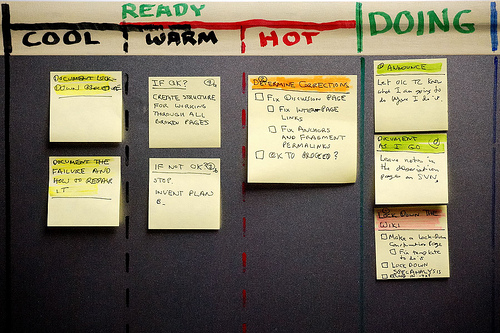 READY
COOL
WARM
HOT
DOING
DOCUMENT LOCK-
DOWN PROCEDURE
DOCUMENT THE
FAILURE AND
HOW TO REPAIR
IT
IF OK?
CREATE STRUCTURE
FOR WORKING
THROUGH ALL
BROKEN PAGES
IF NOT OK?
STOP.
INVENT PLAN
B.
DETERMINE CORRECTIONS
FIX DISCUSSION PAGE
FIX INTER-PAGE
LINKS
FIX ANCHORS
AND FRAGMENT
PERMALINKS
OK TO PROCEED?
ANNOUNCE
Let OLC TL know
what I am going to
do before I do it.
DOCUMENT
AS I GO
Leave notes in
the
page on SVN.
LOCK DOWN THE
WIKI
Make a Lock-Down
Confirmation Page
Fix template
to do it
LOCK DOWN